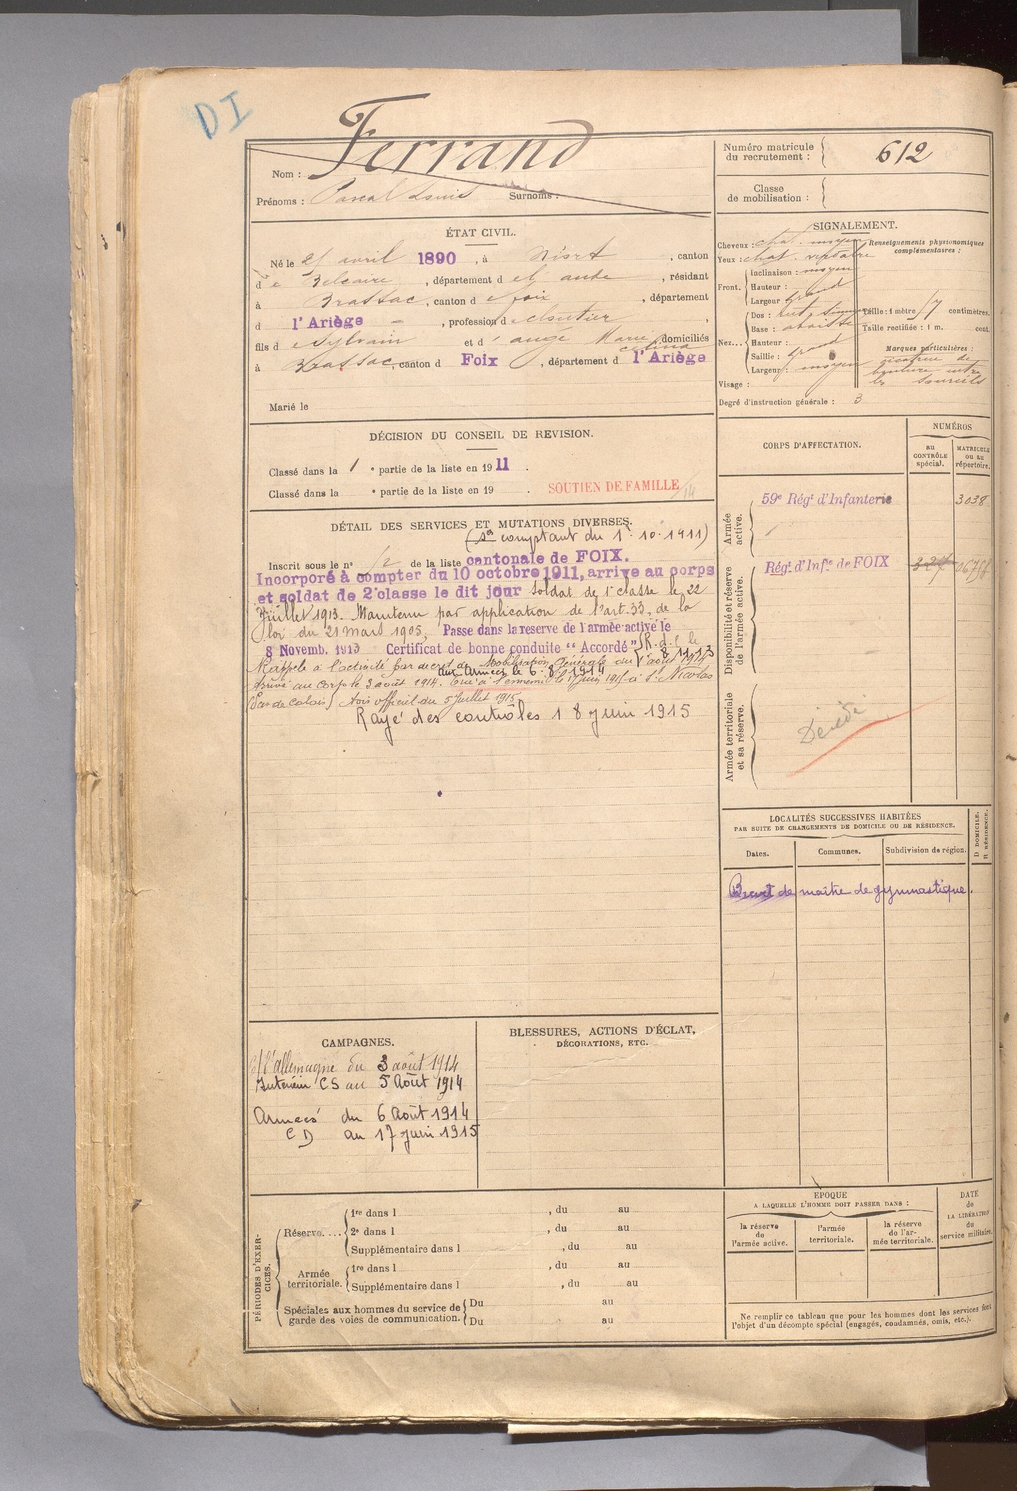 DI
Nom : Ferrand
Prénoms : Pascal Louis Surnoms :
Numéro matricule du recrutement : 612
Classe de mobilisation :
ÉTAT CIVIL.
Né le 25 avril 1890, à Niort, canton
de Belcaire, département de l'aude, résidant
à Brassac, canton de foix, département
d l'Ariège, profession de cloutier,
fils de Sylvain et d'ange Marie domiciliés
à Brassac, canton d Foix, département d l'Ariège
Marié le
SIGNALEMENT.
Cheveux : chat. moyen
Yeux : chat. verdâtre
Front. Inclinaison : moyen
Hauteur : grand
Largeur : grand
Nez... Dos :
Base :
Hauteur :
Saillie : grand
Largeur : moyen
Visage :
Renseignements physionomiques complémentaires :
Taille : 1 mètre centimètres.
Taille rectifiée : 1 m. cent.
Marques particulières :
cicatrice de
entre
les sourcils
Degré d'instruction générale : 3
DÉCISION DU CONSEIL DE REVISION.
Classé dans la 1e partie de la liste en 1911.
Classé dans la e partie de la liste en 19 .
SOUTIEN DE FAMILLE
DÉTAIL DES SERVICES ET MUTATIONS DIVERSES.
(se comptant du 1er 10 1911)
Inscrit sous le n° 12 de la liste cantonale de FOIX.
Incorporé à compter du 10 octobre 1911, arrive au corps
et soldat de 2e classe le dit jour Soldat de 1e classe le 22
Juillet 1913. Maintenu par application de l'art. 33, de la
loi du 21 Mars 1905. Passe dans la reserve de l'armée active le
8 Novemb. 1913 Certificat de bonne conduite "Accordé" R.d.f. le 8 11 13
Rappelé à l'activité par decret de Mobilisation Générale du 1 août 1914
Arrivé au Corps le 3 août 1914. aux Armées le 6.8.1914 Tué à l'ennemi le 17 juin 1915 à St. Nicolas
(Pas de Calais) Avis officiel du 5 Juillet 1915
Rayé des contrôles 18 juin 1915
CORPS D'AFFECTATION.
NUMÉROS
au CONTRÔLE spécial.
MATRICULE ou au répertoire.
Armée active.
59e Régt d'Infanterie 3038
Disponibilité et réserve de l'armée active.
Régt d'Infie de FOIX
Armée territoriale et sa réserve.
Décédé
LOCALITÉS SUCCESSIVES HABITÉES
PAR SUITE DE CHANGEMENTS DE DOMICILE OU DE RÉSIDENCE.
Dates. Communes. Subdivision de région. D DOMICILE. R RÉSIDENCE.
Brevet de maître de gymnastique.
CAMPAGNES.
c/ l'allemagne du 3 août 1914
Intérieur CS au 5 Août 1914
Armées du 6 Août 1914
CD au 17 juin 1915
BLESSURES, ACTIONS D'ÉCLAT,
DÉCORATIONS, ETC.
PÉRIODES D'EXERCICES.
Réserve.... 1re dans l , du au
2e dans l , du au
Supplémentaire dans l , du au
Armée territoriale. 1re dans l , du au
Supplémentaire dans l , du au
Spéciales aux hommes du service de garde des voies de communication. Du au
Du au
EPOQUE
A LAQUELLE L'HOMME DOIT PASSER DANS :
la réserve de l'armée active.
l'armée territoriale.
la réserve de l'armée territoriale.
DATE de LA LIBÉRATION du service militaire.
Ne remplir ce tableau que pour les hommes dont les services font
l'objet d'un décompte spécial (engagés, condamnés, omis, etc.).